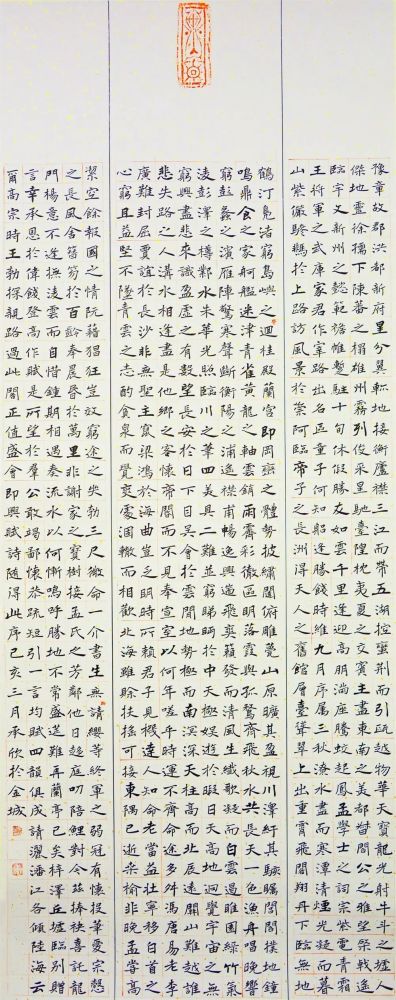 豫章故郡洪都新府星分翼軫地接衡廬襟三江而帶五湖控蠻荊而引甌越物華天寶龍光射牛斗之墟人
傑地靈徐孺下陳蕃之榻雄州霧列俊采星馳臺隍枕夷夏之交賓主盡東南之美都督閻公之雅望棨戟遙
臨宇文新州之懿範襜帷暫駐十旬休假勝友如雲千里逢迎高朋滿座騰蛟起鳳孟學士之詞宗紫電青霜
王將軍之武庫家君作宰路出名區童子何知躬逢勝餞時維九月序屬三秋潦水盡而寒潭清煙光凝而暮
山紫儼驂騑於上路訪風景於崇阿臨帝子之長洲得天人之舊館層臺聳翠上出重霄飛閣翔丹下臨無地
鶴汀鳧渚窮島嶼之迴桂殿蘭宮即岡巒之體勢披繡闥俯雕甍山原曠其盈視川澤紆其駭矚閭閻撲地鐘
鳴鼎食之家舸艦迷津青雀黃龍之軸雲銷雨霽彩徹區明落霞與孤鶩齊飛秋水共長天一色漁舟唱晚響
窮彭蠡之濱雁陣驚寒聲斷衡陽之浦遙襟甫暢逸興遄飛爽籟發而清風生纖歌凝而白雲遏睢園綠竹氣
淩彭澤之樽鄴水朱華光照臨川之筆四美具二難並窮睇眄於中天極娛遊於暇日天高地迥覺宇宙之無
窮興盡悲來識盈虛之有數望長安於日下目吳會於雲間地勢極而南溟深天柱高而北辰遠關山難越誰
悲失路之人溝水相逢盡是他鄉之客懷帝閽而不見奉宣室以何年嗟乎時運不齊命途多舛馮唐易老李
廣難封屈賈誼於長沙非無聖主竄梁鴻於海曲豈乏明時所賴君子見機達人知命老當益壯寧移白首之
心窮且益堅不墜青雲之志酌貪泉而覺爽處涸轍而相歡北海雖賒扶搖可接東隅已逝桑榆非晚孟嘗高
潔空餘報國之情阮藉猖狂豈效窮途之哭勃三尺微命一介書生無請纓等終軍之弱冠有懷投筆愛宗愨
之長風舍簪笏於百齡奉晨昏於萬里非謝家之寶樹接孟氏之芳鄰他日趨庭叨陪鯉對今茲捧袂喜託龍
門楊意不逢撫凌雲而自惜鍾期相遇奏流水以何慚嗚呼勝地不常盛筵難再蘭亭已矣梓澤丘墟臨別贈
言幸承恩於偉餞登高作賦是所望於羣公敢竭鄙懷恭疏短引一言均賦四韻俱成請灑潘江各傾陸海云
爾高宗時王勃探親路過此間正值盛會即興賦詩隨得此序己亥三月承欣於金城